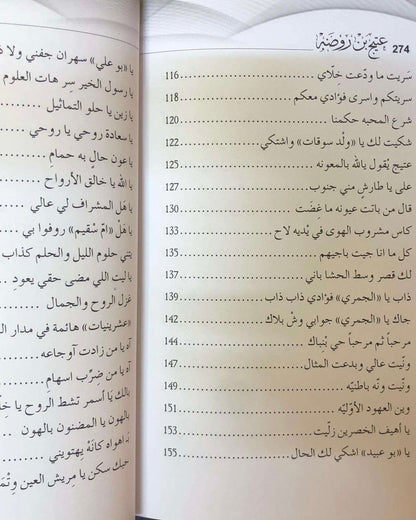 274 عتيج بن روضه
سَريت ما ودّعت خلّاي 116
سريتكم واسرى فؤادي معكم 118
شرع المحبه حكمنا 120
شكيت لك يا «ولْد سوقات» واشتكي 122
عتيج يْقول ياالله بالمعونه 125
على يا طارشٍ مني جنوب 127
قال من باتت عيونه ما غضَت 130
كاس مشروب الهوى في يْديه لاح 133
كل ما انا جيت باجيهم 135
لك قصر وسط الحشا باني 137
ذاب يا «الجمري» فؤادي ذاب ذاب 139
جاك يا «الجمري» جوابي وشْ بلاك 142
مرحباً ثم مرحبا حي بْنباك 144
ونّيت عالي وبدعت المثال 147
ونّيت ونّه باطنيّه 149
وين العهود الأوّليّه 151
يا أهيف الخصرين زلّيت 153
يا «بو عبيد» اشكي لك الحال 155
يا «بو علي» سهران جفني ولا ذ
يا رسول الخير سِر هات العلوم
يا زين يا حلو التماثيل
يا سعادة روحي يا روحي
يا عون حالٍ به حمام
يا الله يا خالق الأرواح
يا هَل المشراف لي عالي
يا هَلْ «ام سْقيم» روفوا بي
يتني حلوم الليل والحلم كذاب
يا ليت اللي مضى حقي يعود
غزل الروح والجمال
«عشرينيات» هائمة في مدار ال
آه يا من زادت آوجاعه
آه يا من ضرّب اسهامٍ
يالك يا أسمر تشط الروح يا خِ
بالهون يا المضنون بالهون
بَد اهواه كانَهْ يهتويني
حبك سكن يا مريش العين وتْمَـ